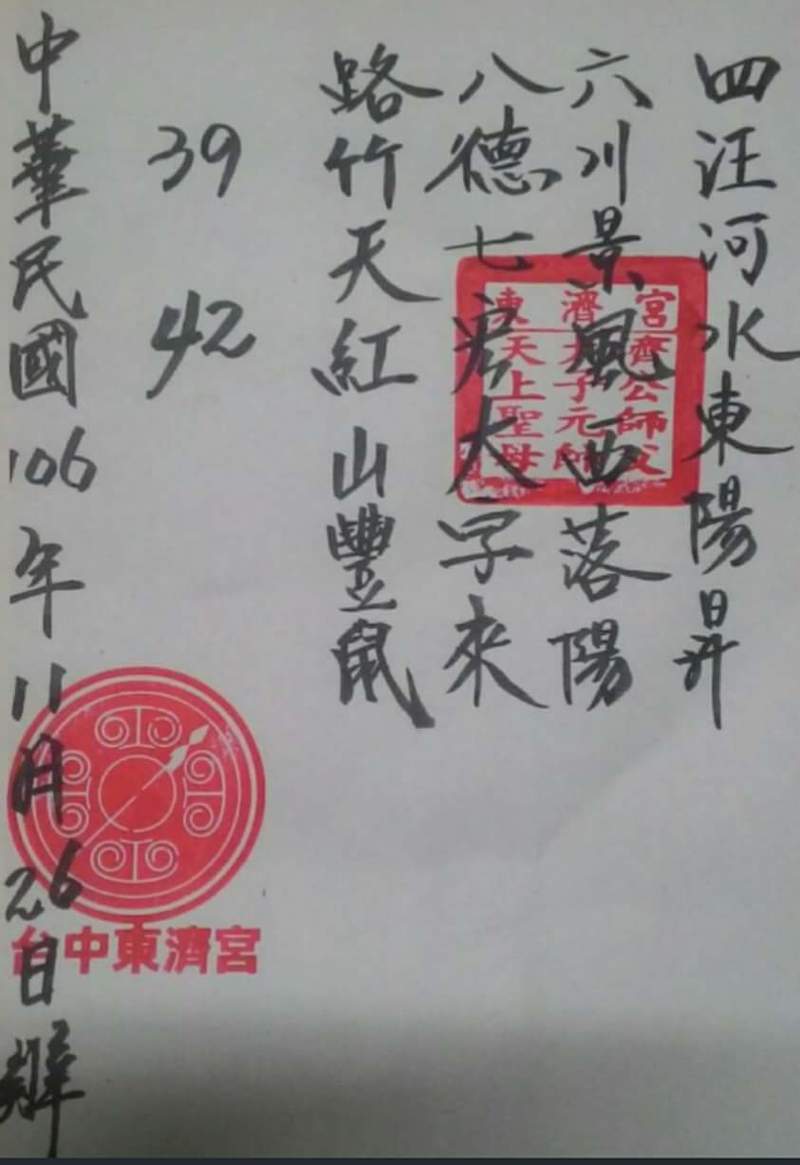 四汪河水東陽昇
六川景風西落陽
八德七宏大字來
路竹天紅山豐鼠
39 42
中華民國106年11月26日
東濟宮
濟公師父
太子元帥
天上聖母
台中東濟宮